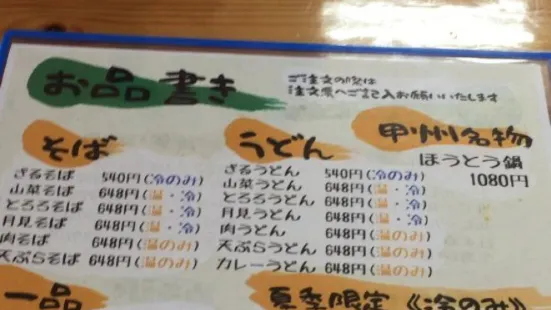 お品書き
ご注文の際は
注文票へご記入お願いいたします
そば
ざるそば 540円(冷のみ)
山菜そば 648円(温・冷)
とろろそば 648円(温・冷)
月見そば 648円(温・冷)
肉そば 648円(温のみ)
天ぷらそば 648円(温のみ)
うどん
ざるうどん 540円(冷のみ)
山菜うどん 648円(温・冷)
とろろうどん 648円(温・冷)
月見うどん 648円(温・冷)
肉うどん 648円(温のみ)
天ぷらうどん 648円(温のみ)
カレーうどん 648円(温のみ)
甲州名物
ほうとう鍋
1080円
一品
夏季限定《冷のみ》